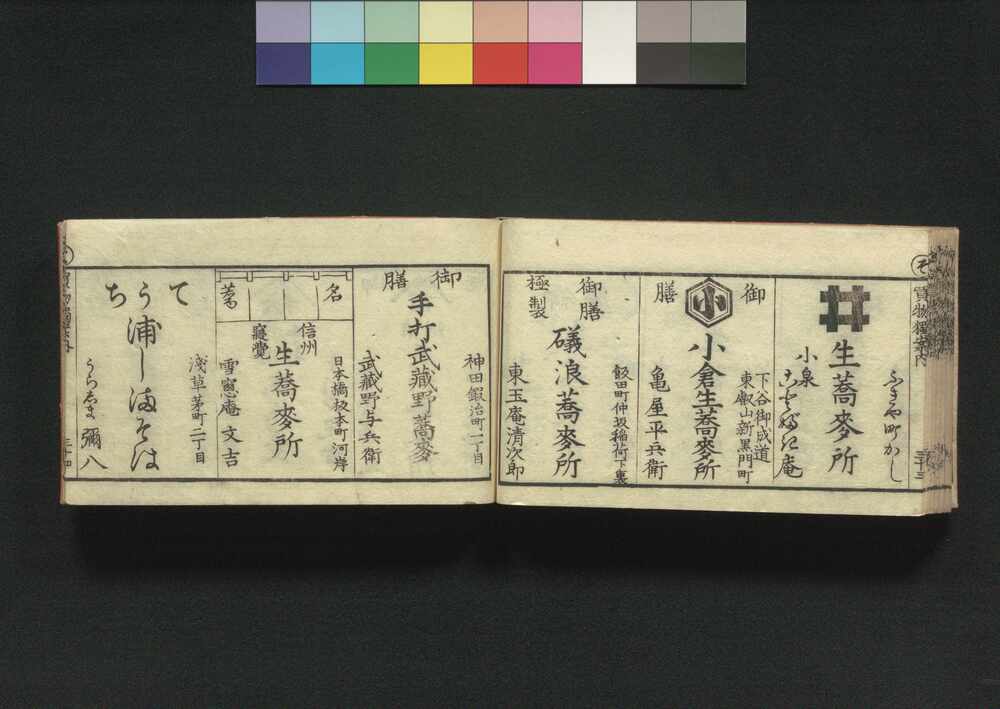 そ
買物獨案内
三十三
ふきや町かし
生蕎麦所
小泉
庵
下谷御成道
東叡山新黒門町
御膳
小
小倉生蕎麦所
亀屋平兵衛
飯田町仲坂稲荷下裏
御膳
極製
礒浪蕎麦所
東玉庵清次郎
神田鍜治町一丁目
御膳
手打武蔵野蕎麦
武蔵野与兵衛
名
日本橋坂本町河岸
信州
寝覚
生蕎麦所
雪窓庵文吉
浅草茅町二丁目
てうち
浦しまそは
うらしま彌八
三十四